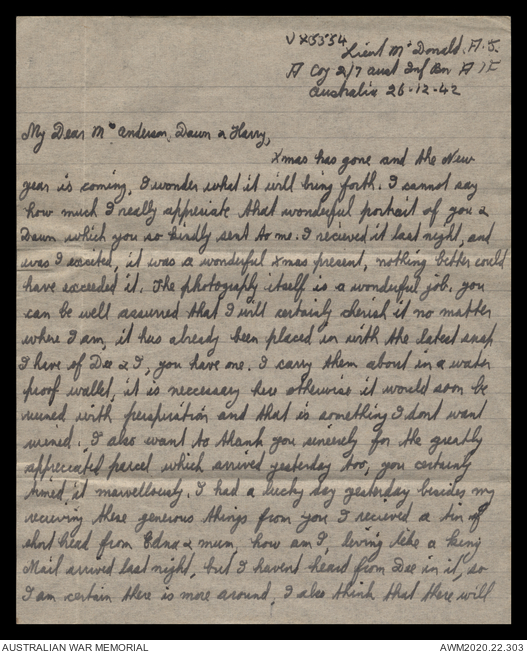 VX5554
Lieut McDonald. A.J.
A Coy 2/7 Aust Inf Bn A.I.F
Australia 26-12-42
My Dear Mrs Anderson, Dawn & Harry,
Xmas has gone and the New
year is coming, I wonder what it will bring forth. I cannot say
how much I really appreciate that wonderful portrait of you &
Dawn which you so kindly sent to me. I recieved it last night, and
was I excited, it was a wonderful Xmas present, nothing better could
have exceeded it. The photography itself is a wonderful job. you
can be well assured that I will certainly cherish it no matter
where I am, it has already been placed in with the latest snap
I have of Dee & I, you have one. I carry them about in a water
proof wallet, it is neccessary here otherwise it would soon be
ruined with perspiration and that is something I dont want
ruined. I also want to thank you sincerely for the greatly
appreciated parcel which arrived yesterday too, you certainly
timed it marvellously. I had a lucky day yesterday besides my
recieving these generous things from you I recieved a tin of
short bread from Edna & mum, how am I, living like a king
Mail arrived last night, but I havent heard from Dee in it, so
I am certain there is more around, I also think that there will
AUSTRALIAN WAR MEMORIAL
AWM2020.22.303